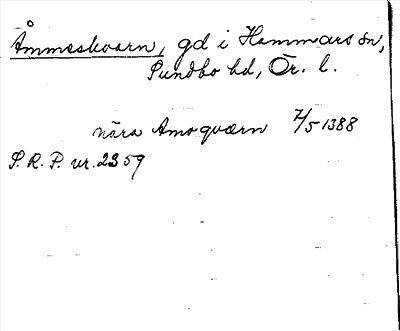 Åmmeskvarn, gd i Hammars sn,
Sundbo hd, Ör. l.
nära Amoquærn 7/5 1388
S. R. P. nr. 2359